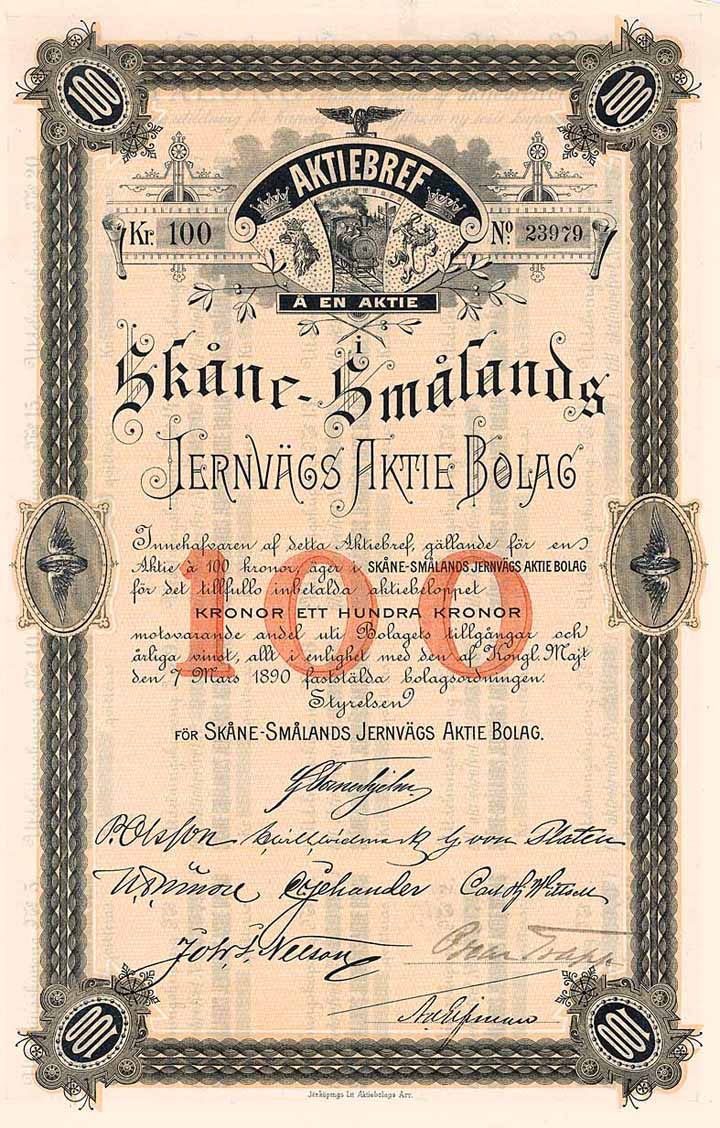 100 100
AKTIEBREF
Kr. 100 No. 23979
Å EN AKTIE
i
Skåne-Smålands
JERNVÄGS AKTIE BOLAG
100
Innehafvaren af detta Aktiebref, gällande för en
Aktie à 100 kronor, äger i SKÅNE-SMÅLANDS JERNVÄGS AKTIE BOLAG
för det tillfullo inbetalda aktiebeloppet
KRONOR ETT HUNDRA KRONOR
motsvarande andel uti Bolagets tillgångar och
årliga vinst, allt i enlighet med den af Kongl. Majt
den 7 Mars 1890 faststälda bolagsordningen.
Styrelsen
FÖR SKÅNE-SMÅLANDS JERNVÄGS AKTIE BOLAG.
P. Olsson von Platen
Gehander
Nelson
100 100
Jönköpings Lit Aktiebolags Arr.